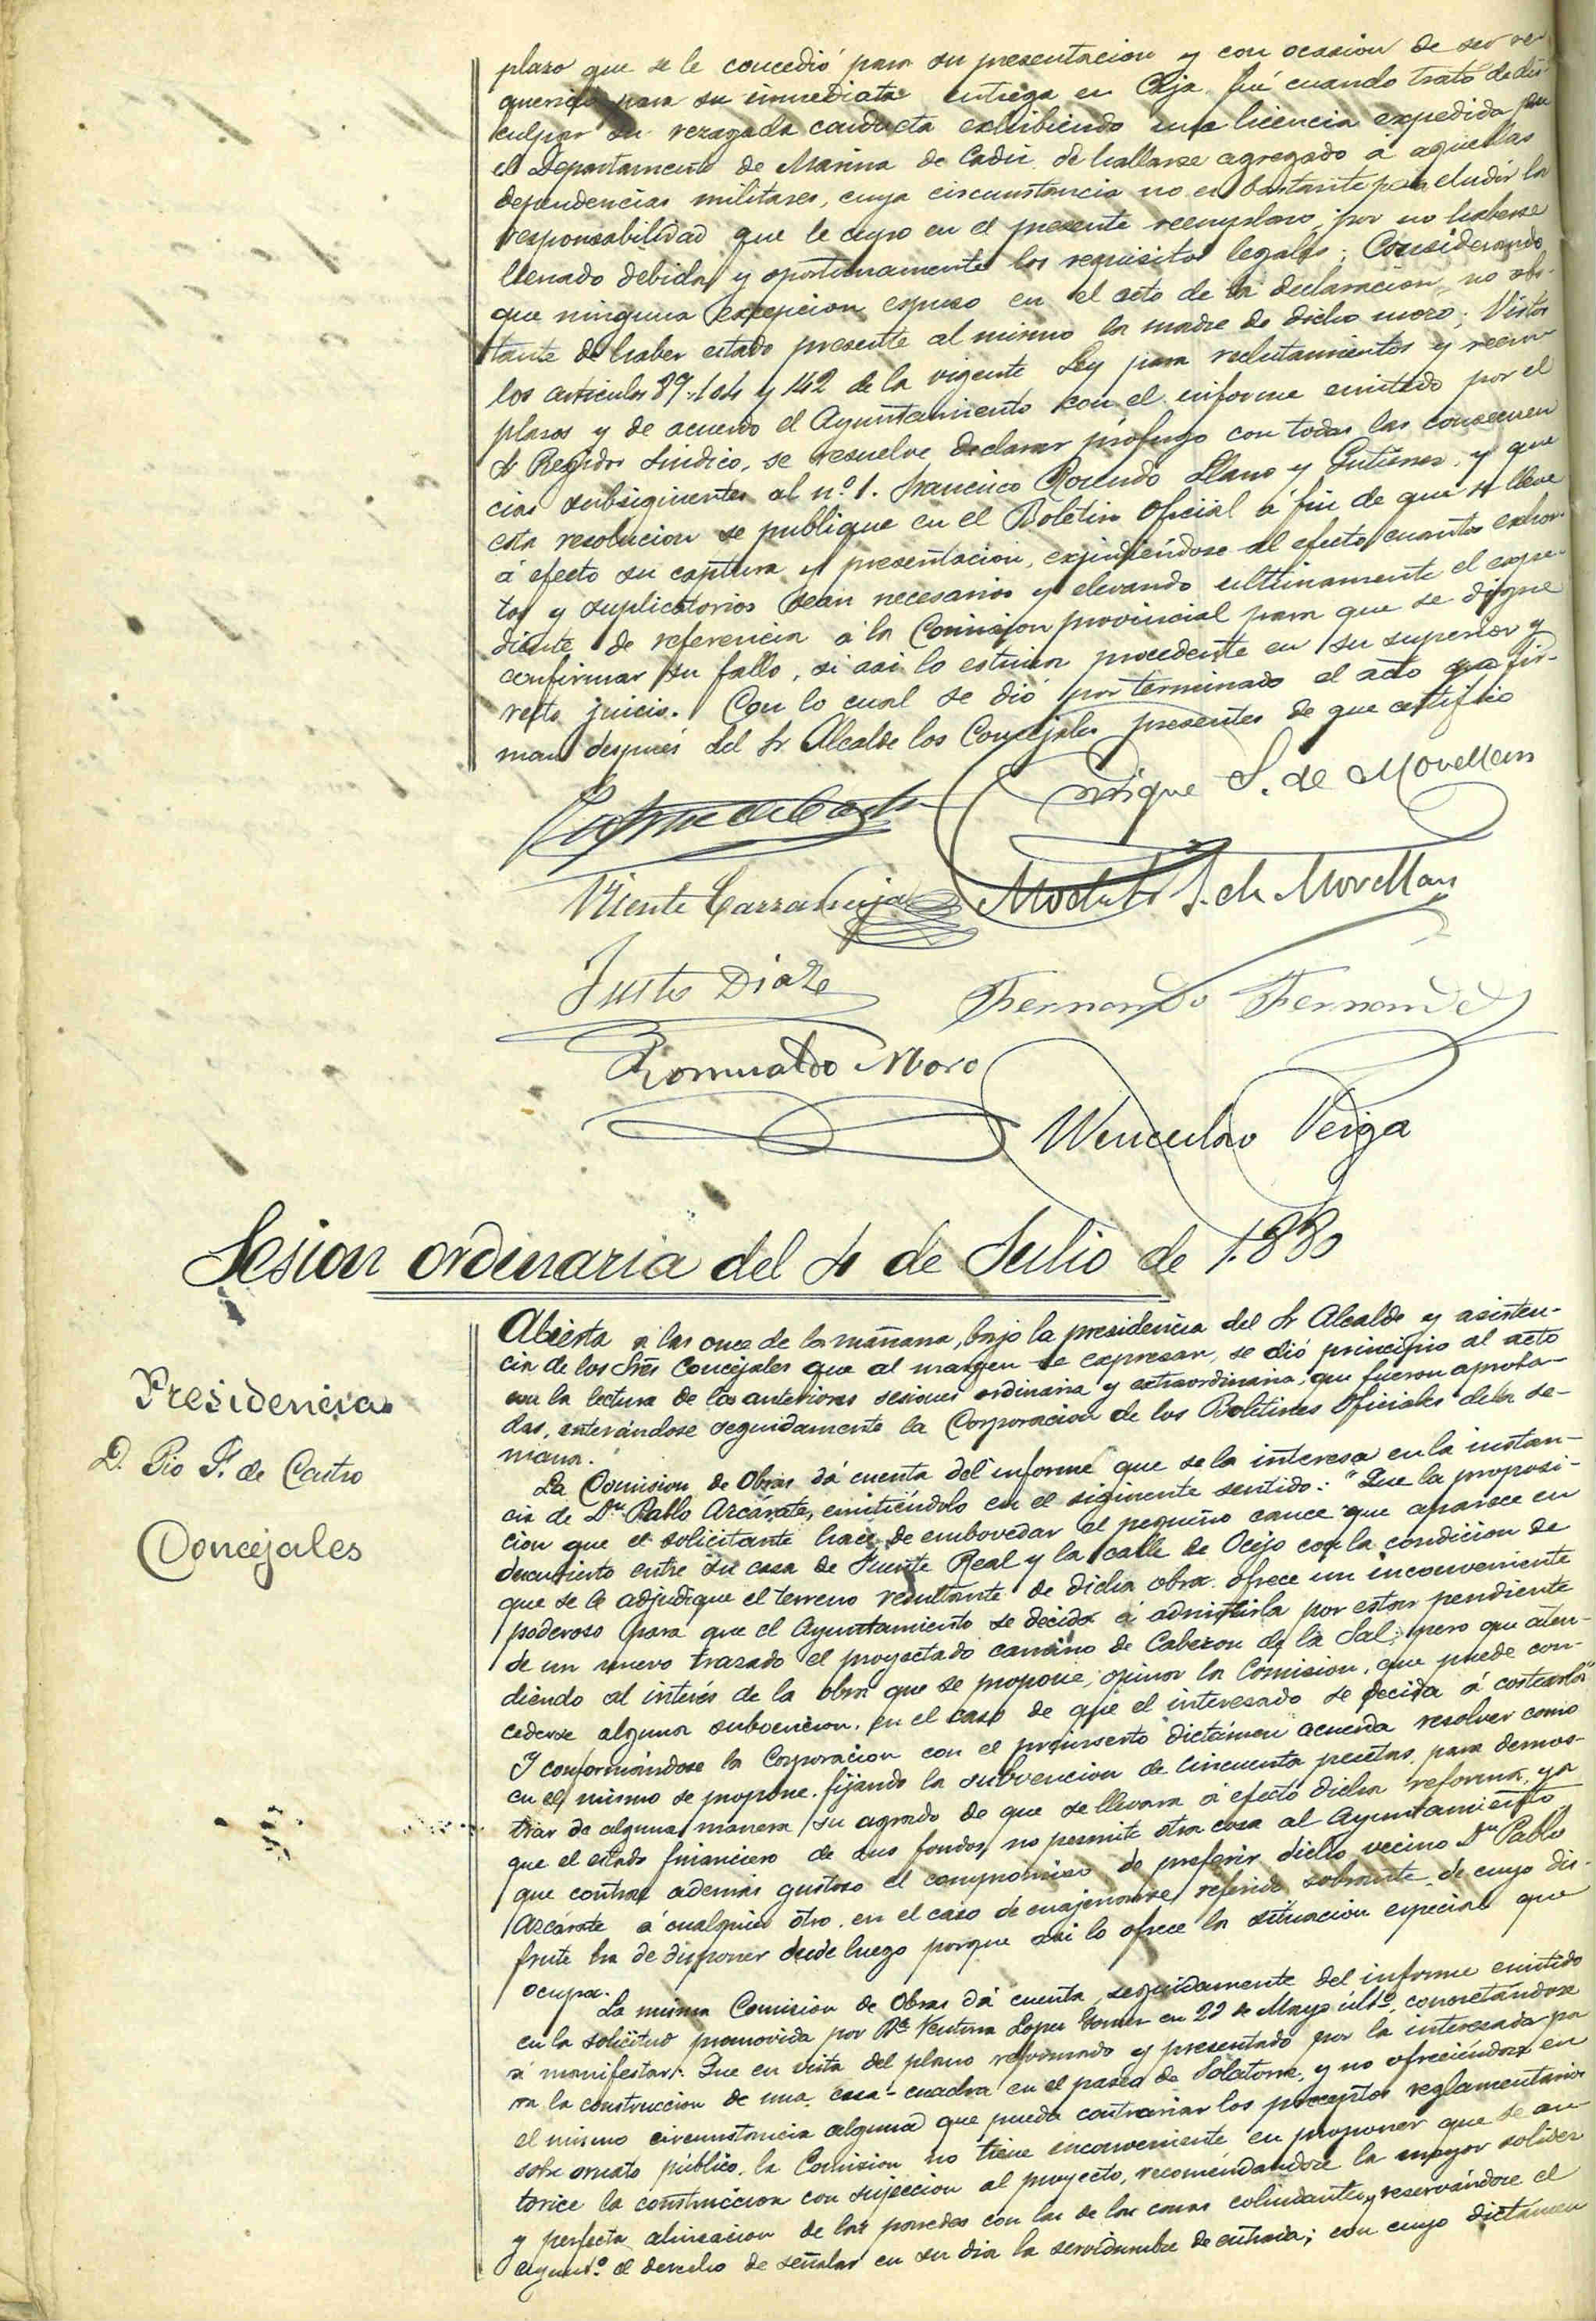 plazo que se le concedió para su presentacion y con ocasion de ser re-
querido para su inmediata entrega en Caja fué cuando trató de dis-
culpar su rezagada conducta exhibiendo una licencia expedida por
el Departamento de Marina de Cadiz de hallarse agregado á aquellas
dependencias militares, cuya circunstancia no es bastante para eludir la
responsabilidad que le cupo en el presente reemplazo, por no haberse
llenado debida y oportunamente los requisitos legales; Considerando
que ninguna excepcion expuso en el acto de la declaracion no obs-
tante de haber estado presente al mismo la madre de dicho mozo; Vistos
los articulos 89, 104 y 142 de la vigente Ley para reclutamientos y reem-
plazos y de acuerdo el Ayuntamiento con el informe emitido por el
Sr Regidor Sindico, se resuelve declarar prófugo con todas las consecuen
cias subsiguientes al nº. 1. Francisco Rosendo Llano y Gutierrez, y que
esta resolucion se publique en el Boletin Oficial á fin de que se lleve
á efecto su captura y presentacion, expidiéndose al efecto cuantos exhor-
tos y suplicatorios sean necesarios y elevando ultimamente el expe-
diente de referencia á la Comision provincial para que se digne
confirmar su fallo, si asi lo estima procedente en su superior y
recto juicio. Con lo cual se dió por terminado el acto que fir-
man después del Sr. Alcalde los Concejales presentes de que certifico
Enrique S. de Movellan
Vicente Carranceja
Modesto S. de Movellan
Justo Diaz
Fernando Fernandez
Romualdo Moro
Wenceslao Veiga
Sesion ordinaria del 4 de Julio de 1.880
Presidencia.
D. Pio F. de Castro
Concejales
Abierta á las once de la mañana, bajo la presidencia del Sr Alcalde y asisten-
cia de los Sres Concejales que al margen se expresan, se dió principio al acto
con la lectura de las anteriores sesiones ordinaria y extraordinaria, que fueron aproba-
das, enterándose seguidamente la Corporacion de los Boletines Oficiales de la se-
mana.
La Comision de Obras dá cuenta del informe que se la interesa en la instan-
cia de Dn Pablo Azcárate, emitiéndolo en el siguiente sentido: "Que la proposi-
cion que el solicitante hace de embovedar el pequeño cauce que aparece en
descubierto entre su casa de Fuente Real y la calle de Ocejo con la condicion de
que se le adjudique el terreno resultante de dicha obra, ofrece un inconveniente
poderoso para que el Ayuntamiento se decida á admitirla por estar pendiente
de un nuevo trazado el proyectado camino de Cabezon de la Sal; pero que aten-
diendo al interés de la obra que se propone, opina la Comision, que puede con-
cederse alguna subvencion, en el caso de que el interesado se decida á costearla"
Y conformándose la Corporacion con el preinserto dictámen acuerda resolver como
en el mismo se propone, fijando la subvencion de cincuenta pesetas, para demos-
trar de alguna manera su agrado de que se llevara á efecto dicha reforma, ya
que el estado financiero de sus fondos, no permite otra cosa al Ayuntamiento
que contrae además gustoso el compromiso de preferir dicho vecino Dn Pablo
Azcárate á cualquier otro, en el caso de enajenarse referido sobrante, de cuyo dis-
frute ha de disponer desde luego porque asi lo ofrece la situacion especial que
ocupa.
La misma Comision de Obras dá cuenta, seguidamente del informe emitido
en la solicitud promovida por Dª Ventura Lopez Gomez en 22 de Mayo últº, concretándose
á manifestar: Que en vista del plano reformado y presentado por la interesada pa
ra la construccion de una casa-cuadra en el paseo de Solatorre, y no ofreciéndose en
el mismo circunstancia alguna que pueda contrariar los preceptos reglamentarios
sobre ornato público, la Comision no tiene inconveniente en proponer que se au-
torice la construccion con sujecion al proyecto, recomendandose la mayor solidez
y perfecta alineacion de las paredes con las de las casas colindantes, y reservándose el
Ayuntº. el derecho de señalar en su dia la servidumbre de entrada; con cuyo dictámen